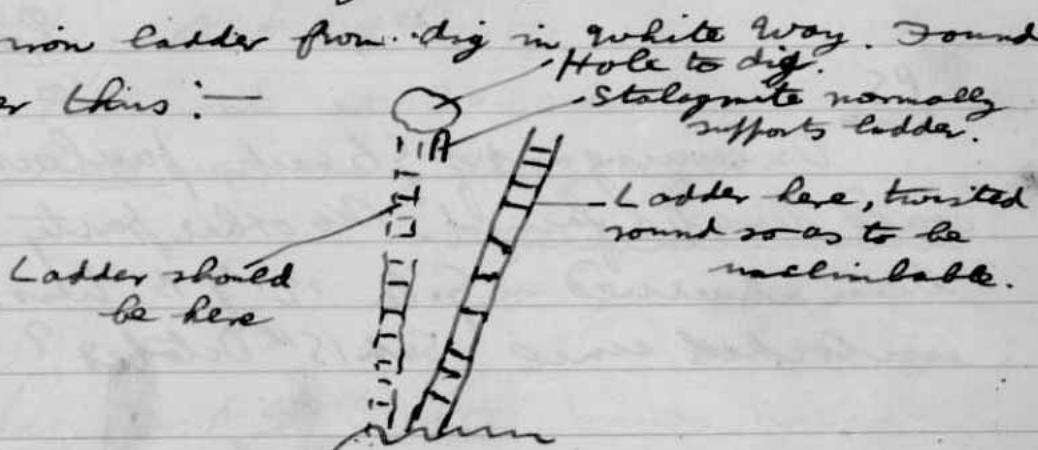 iron ladder from dig in White Way. Found
thus :—
Hole to dig.
Stalagmite normally
supports ladder.
Ladder here, twisted
round so as to be
unclimbable.
Ladder should
be here